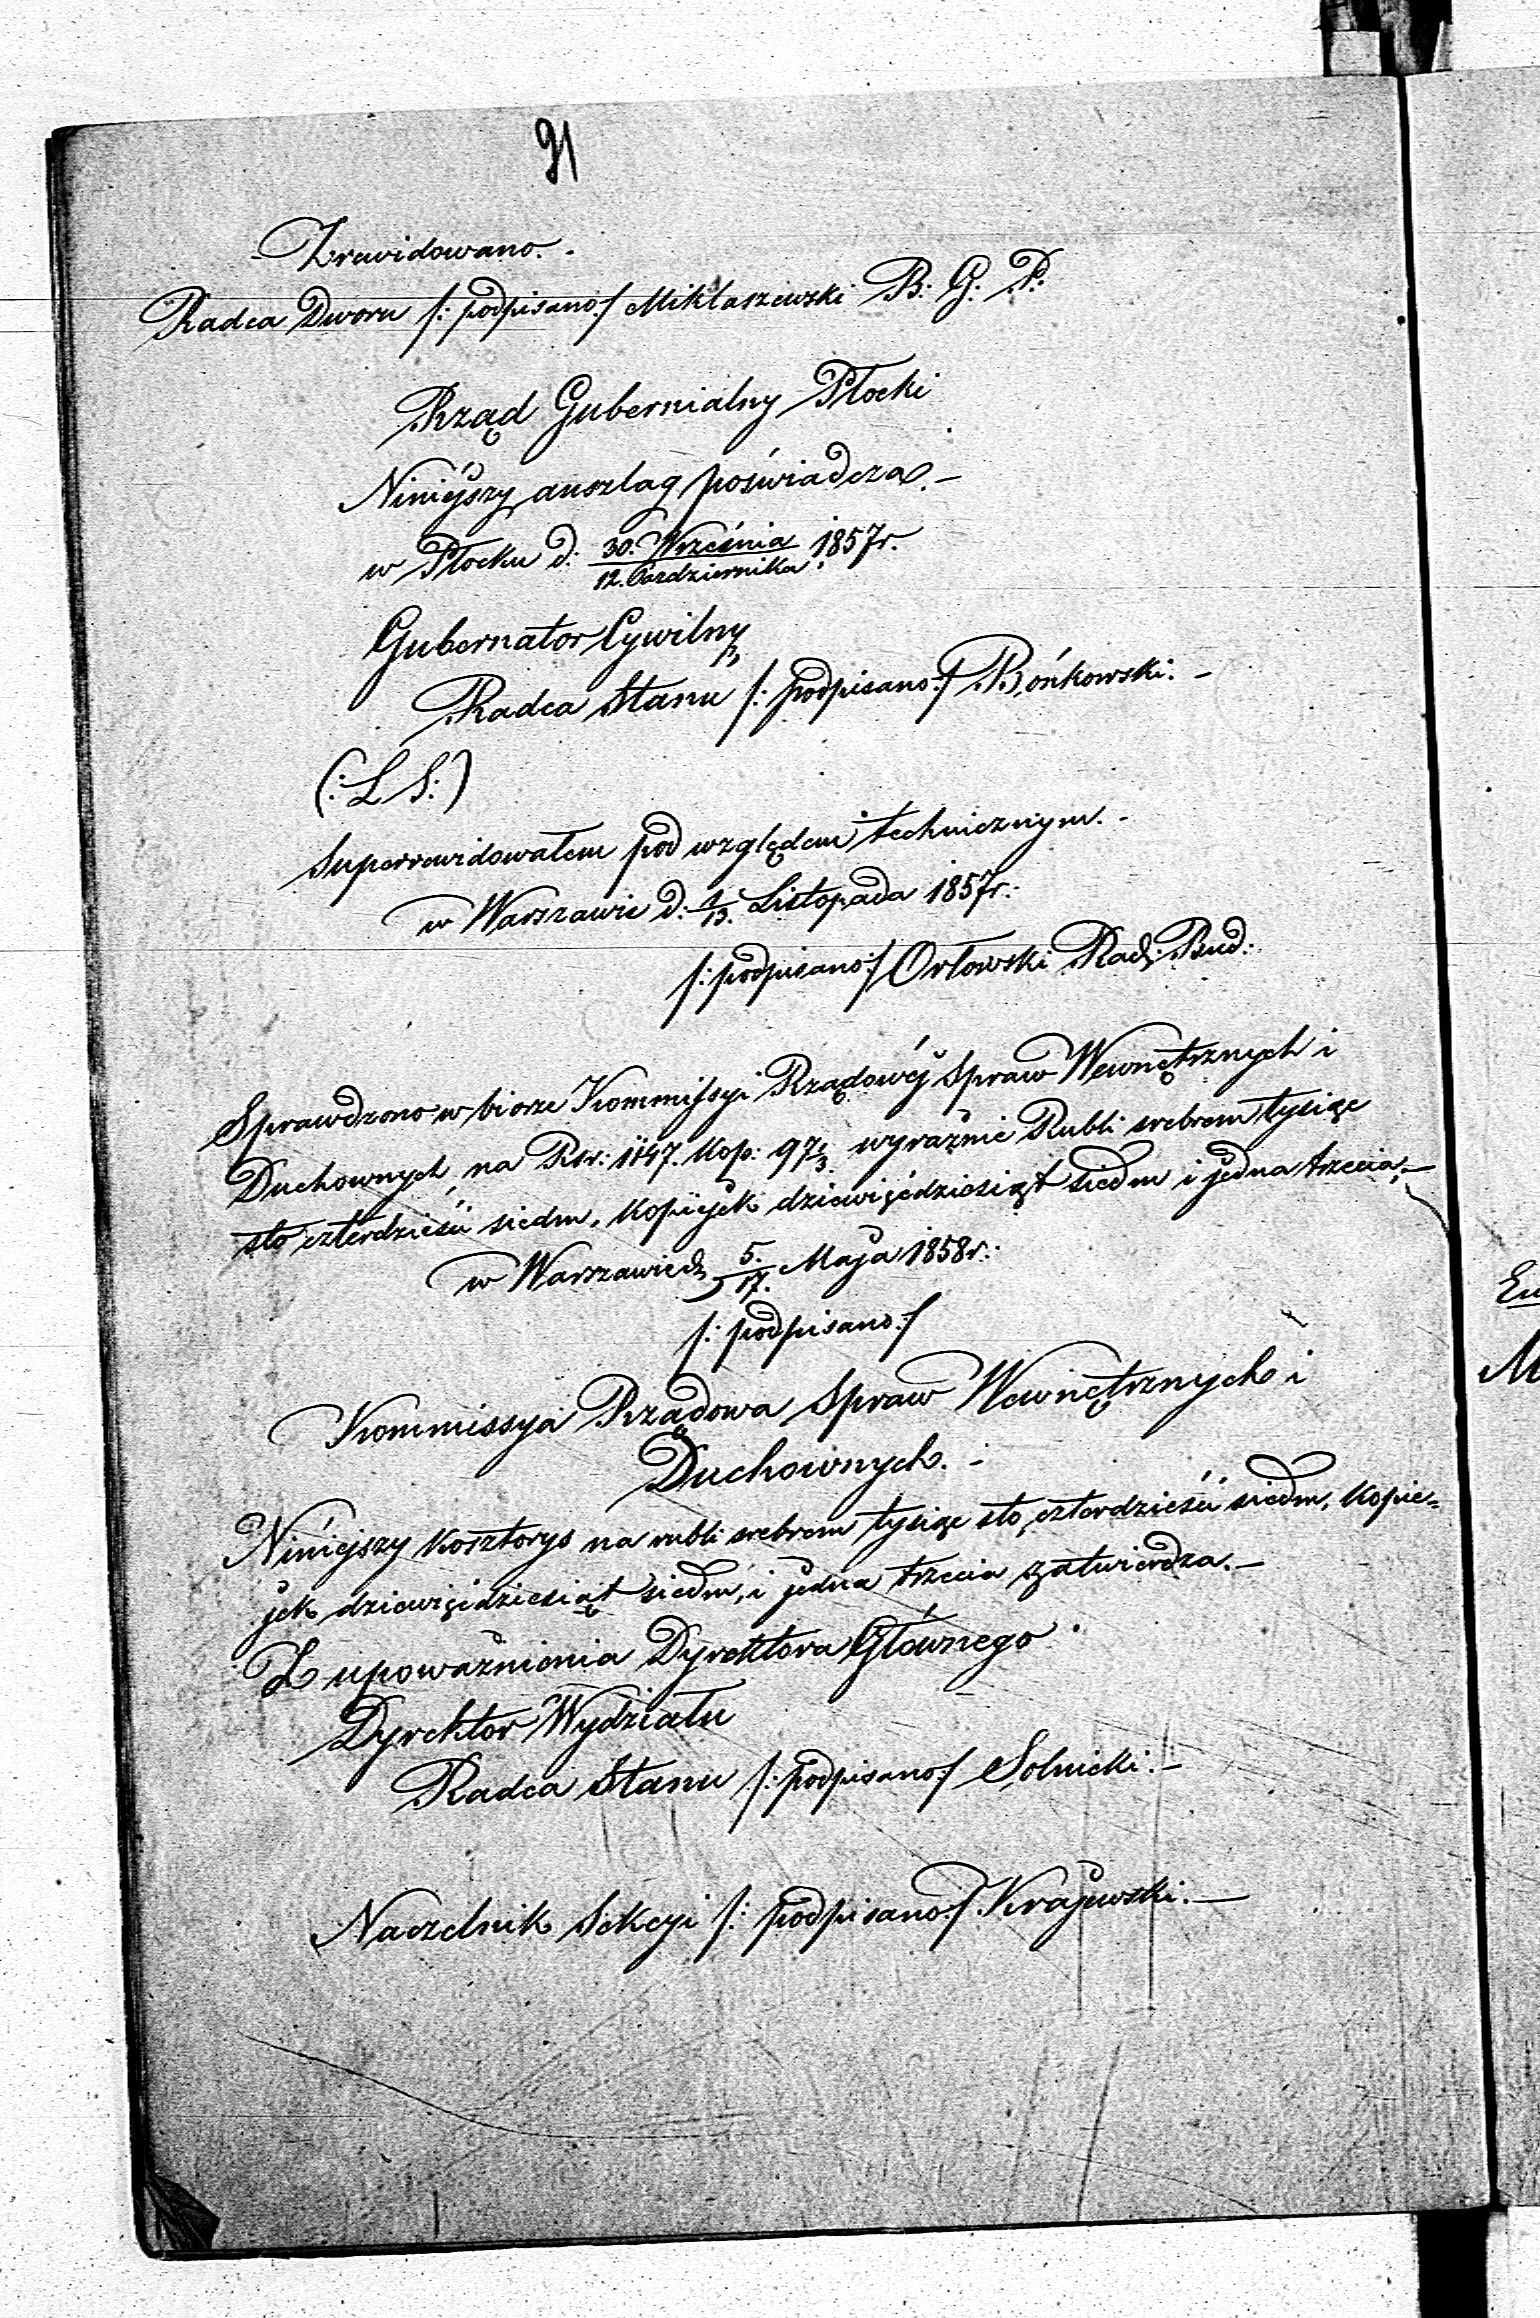 91
Zrewidowano. -
Radca Dworu /: podpisano :/ Miklaszewski B: G: P:
Rząd Gubernialny Płocki
Niniejszy anszlag poświadcza. -
w Płocku d: 30. Września / 12. Października 1857 r.
Gubernator Cywilny
Radca Stanu /: podpisano :/ Bońkowski. -
(: L S :)
Superrewidowałem pod względem technicznym. -
w Warszawie d: 1/13. Listopada 1857 r:
/: podpisano :/ Orłowski Rad: Bud:
Sprawdzono w biorze Kommissyi Rządowéj Spraw Wewnętrznych i
Duchownych, na Rsr: 1147. Kop: 97 1/3. wyraźnie Rubli srebrem tysiąc
sto czterdzieści siedm, kopijek dziewięćdziesiąt siedm i jedna trzecia, -
w Warszawie d. 5./17. Maja 1858 r:
/: podpisano :/
Kommissya Rządowa Spraw Wewnętrznych i
Duchownych. -
Niniejszy kosztorys na rubli srebrem tysiąc sto czterdzieści siedm, kopie=
jek dziewięćdziesiąt siedm, i jedna trzecia zatwierdza. -
Z upoważnienia Dyrektora Głównego
Dyrektor Wydziału
Radca Stanu /: podpisano :/ Solnicki. -
Naczelnik Sekcyi /: podpisano :/ Krajewski. -
M